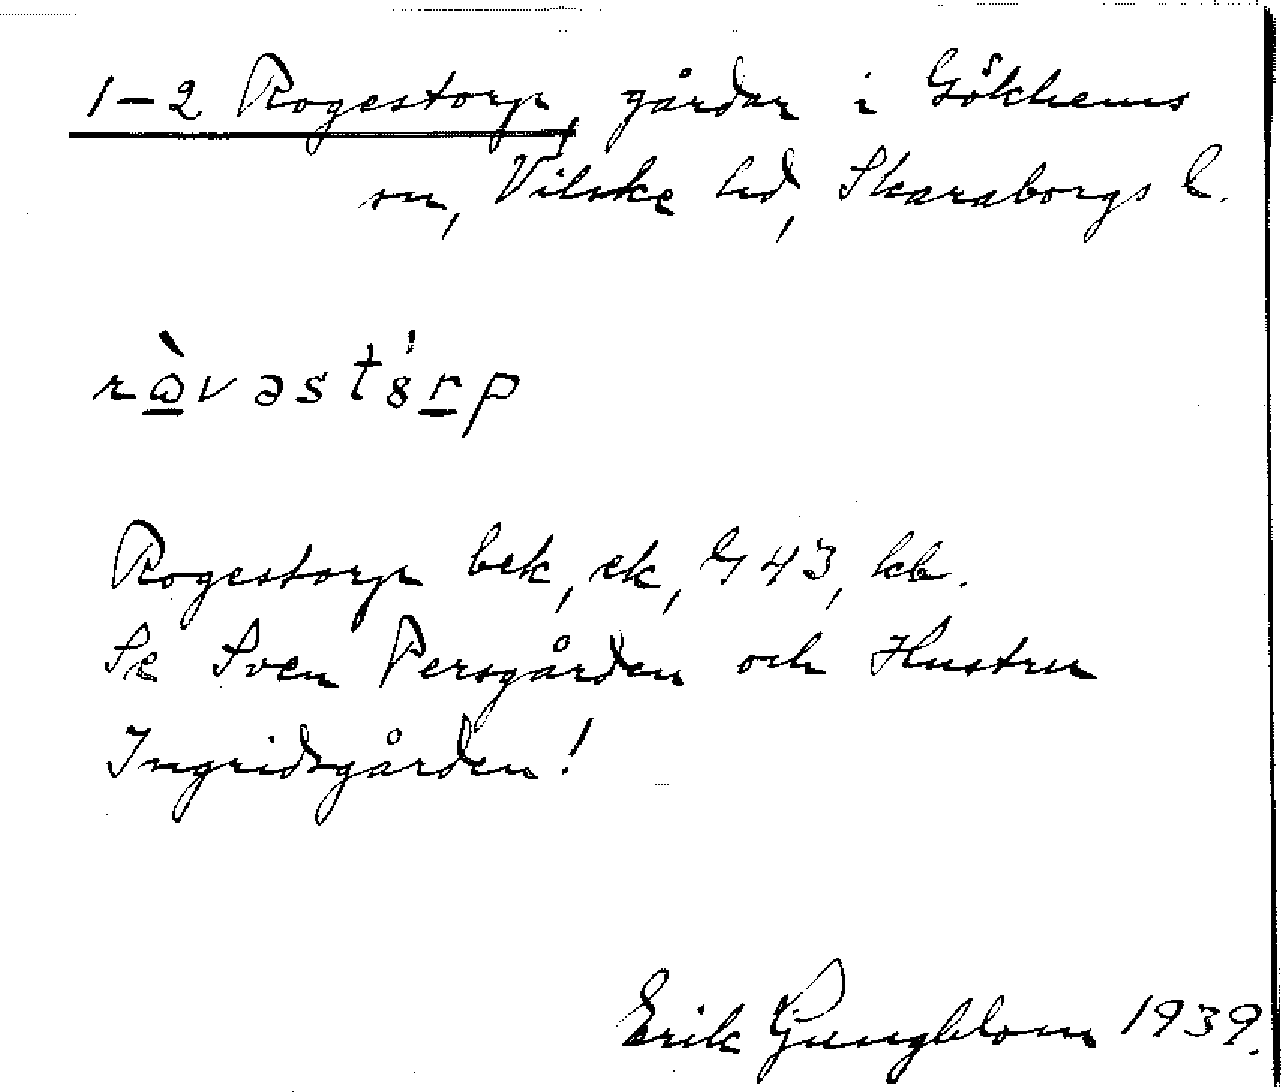 1-2 Rogestorp, gårdar i Gökhems
sn, Vilske hd, Skaraborgs l.
ròvəst8rp
Rogestorp bek, ek, G 43, kb.
Se Sven Persgården och Hustru
Ingridsgården!
Erik Ljungblom 1939.